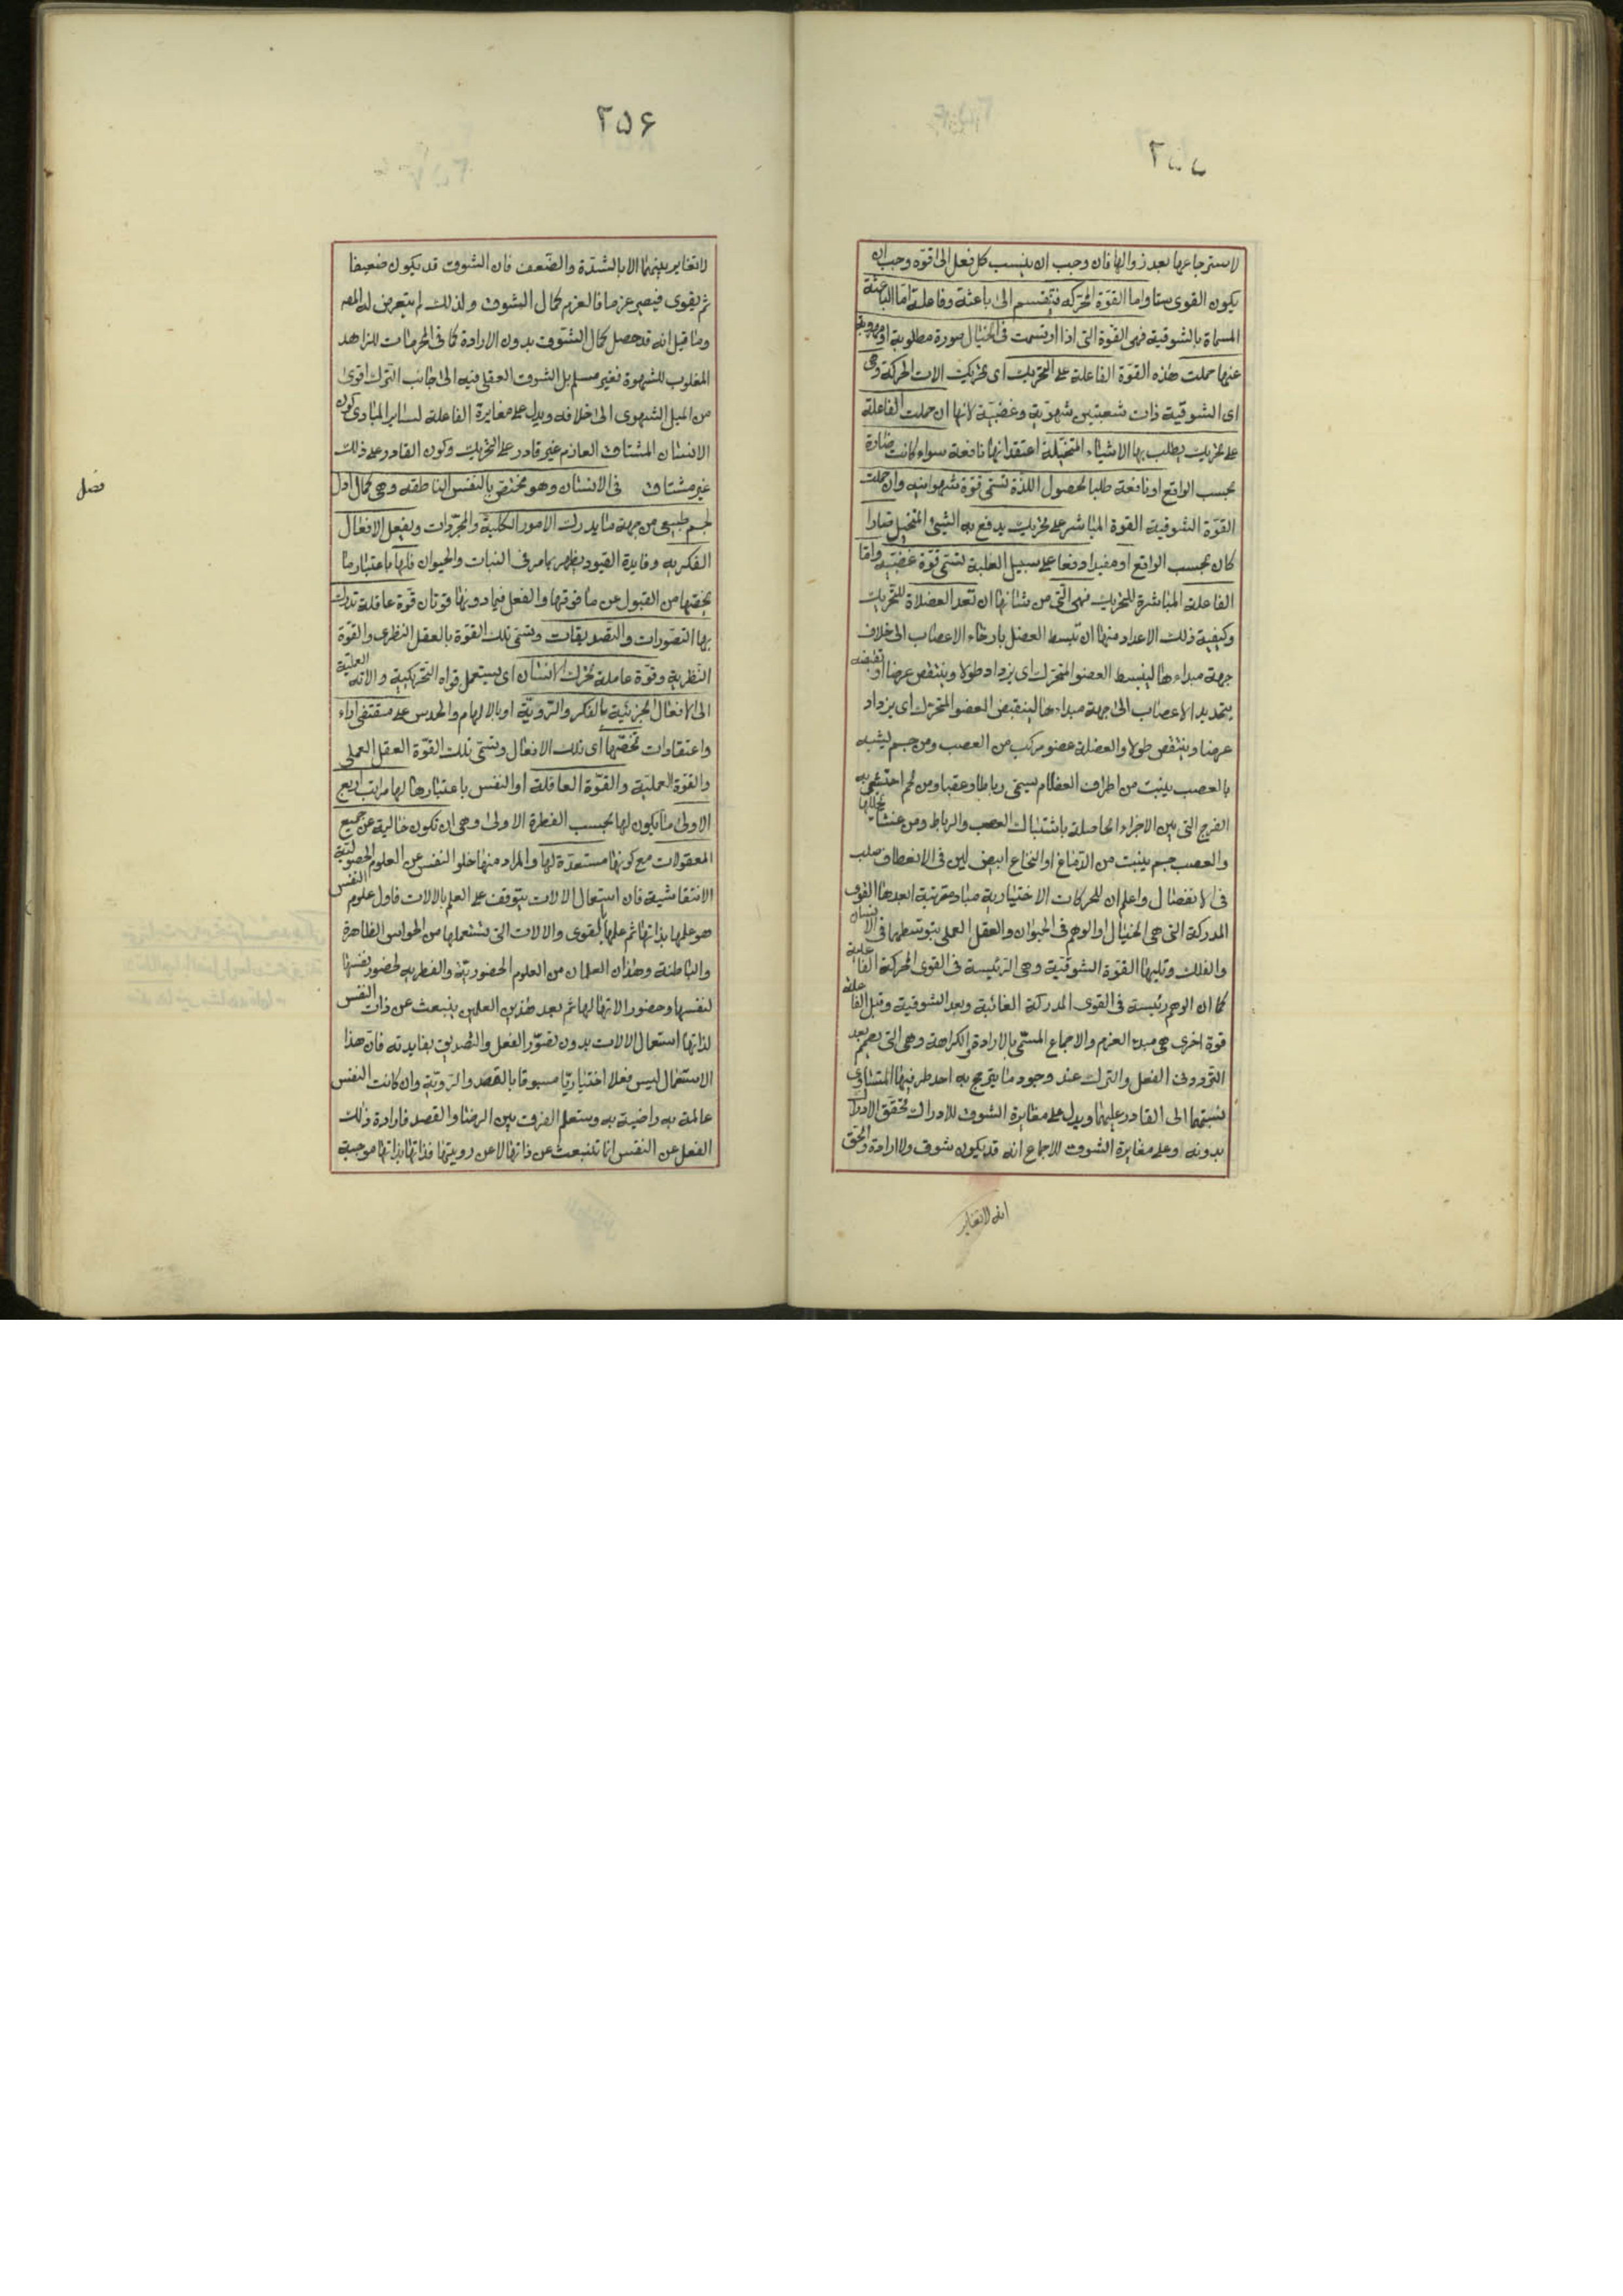 ٢٥٥
لاسترجاعها بعد زوالها فان وجب ان ينسب كل فعل الى قوة وجب ان
يكون القوى ستا واما القوّة المحركه فتنقسم الى باعثة وفاعلة امّا الباعثة
المسماة بالشوقية فهى القوّة التى اذا ارتسمت فى الخيال صورة مطلوبة او مهروبة
عنها حملت هذه القوّة الفاعلة على التحريك اى تحريك الات الحركة وهى
اى الشوقية ذات شعبتين شهويّة وغضبيّة لانها ان حملت الفاعلة
على تحريك يطلب بها الاشياء المتخيّلة اعتقد انها نافعة سواء كانت ضارة
بحسب الواقع او نافعة طلبا لحصول اللذة تسمّى قوّة شهوانية وان حملت
القوّة الشوقية القوة المباشر على تحريك يدفع به الشئ المتخيل ضارا
كان بحسب الواقع او مفيدا دفعا على سبيل الغلبة تسمّى قوّة غضبيّة وامّا
الفاعلة المباشرة للتحريك فهى التى من شانها ان تعد العضلاة للتحريك
وكيفية ذلك الاعداد منها ان تبسط العضل بارخاء الاعصاب الى خلاف
جهة مبداءها لينبسط العضو المتحرك اى يزداد طولا وينتقص عرضا او تقبضه
بتمديد الاعصاب الى جهة مبداءها لينقبض العضو المتحرك اى يزداد
عرضا وينتقص طولا والعضلة عضو مركب من العصب ومن جسم يشبه
بالعصب ينبت من اطراف العظام يسمى رباطا وعقبا ومن لحم احتشى به
الفرج التى بين الاجزاء الحاصلة باشتباك العصب والرباط ومن غشاء تجللها
والعصب جسم ينبت من الدّماغ او النخاع ابيض لين فى الانعطاف صلب
فى الانفصال واعلم ان للحركات الاختيارية مباد مترتبة ابعدها القوى
المدركة التى هى الخيال او الوهم فى الحيوان والعقل العملى بتوسطهما فى الانسان
والفلك وتليها القوّة الشوقية وهى الرّئيسة فى القوى المحركة الفاعلة
كما ان الوهم رئيسة فى القوى المدركة الغائبة وبعد الشوقية وقبل الفاعلة
قوة اخرى هى مبدء العزم والاجماع المسمّى بالارادة والكراهة وهى التى يصمم بعد
التردد فى الفعل والترك عند وجود ما يترجح به احد طرفيها المتساوى
نسبتهما الى القادر عليهما ويدل على مغايرة الشوق للادراك تحقق الادراك
بدونه وعلى مغايرة الشوق للاجماع انه قد يكون شوق ولا ارادة والحق
انه لا تغاير
٢٥۶
لا تغاير بينهما الا بالشدّة والضّعف فان الشوق قد يكون ضعيفا
ثم يقوى فيصير عزما فالعزم كمال الشوق ولذلك لم يتعرض له المصـ
وما قيل انه قد حصل كمال الشوق بدون الارادة كما فى المحرمات للزاهد
المغلوب للشهوة فغير مسلم بل الشوق العقلى فيه الى جانب الترك اقوى
من الميل الشهوى الى خلافه ويدل على مغايرة الفاعلة لساير المبادى كون
الانسان المشتاق العازم غير قادر على التحريك وكون القادر على ذلك
غير مشتاق فى الانسان وهو مختص بالنفس الناطقه وهى كمال اول
فصل
لجسم طبيعى من جهة ما يدرك الامور الكلية والمجرّدات ويفعل الافعال
الفكريه وفايدة القيود يظهر بما مر فى النبات والحيوان فلها باعتبار ما
يخصّها من القبول عن ما فوقها والفعل فيما دونها قوتان قوّة عاقلة تدرك
بها التصوّرات والتصديقات وتسمّى تلك القوّة بالعقل النظرى والقوّة
النّظرية وقوّة عاملة تحرك الانسان اى يستعمل قواه التحريكية والاته العمليّة
الى الافعال الجزئية بالفكر والرّويّة او بالالهام والحدس على مقتضى اراء
واعتقادات تخصّها اى تلك الافعال وتسمّى تلك القوّة العقل العملى
والقوّة العمليّة والقوّة العاقلة او النفس باعتبارها لها مراتب اربع
الاولى ما يكون لها بحسب الفطرة الاولى وهى ان تكون خالية عن جميع
المعقولات مع كونها مستعدّة لها والمراد منها خلو النفس عن العلوم الحصوليّة
الانتقاشية فان استعمال الالات يتوقف على العلم بالالات فاول علوم النفس
هو علمها بذاتها ثم علمها بالقوى والالات التى تستعملها من الحواس الظاهرة
والباطنة وهذان العلمان من العلوم الحضوريّة والفطريه لحضور نفسها
لنفسها وحضور الاتها لها ثم بعد هذين العلمين ينبعث عن ذات النفس
لذاتها استعمال الالات بدون تصوّر الفعل والتصديق بفايدته فان هذا
الاستعمال ليس فعلا اختياريّا مسبوقا بالقصد والرّويّة وان كانت النفس
عالمة به راضية به وستعلم الفرق بين الرضا والقصد فارادة ذلك
الفعل عن النفس انما تنبعث عن ذاتها لا عن رويتها فذاتها بذاتها موجبة